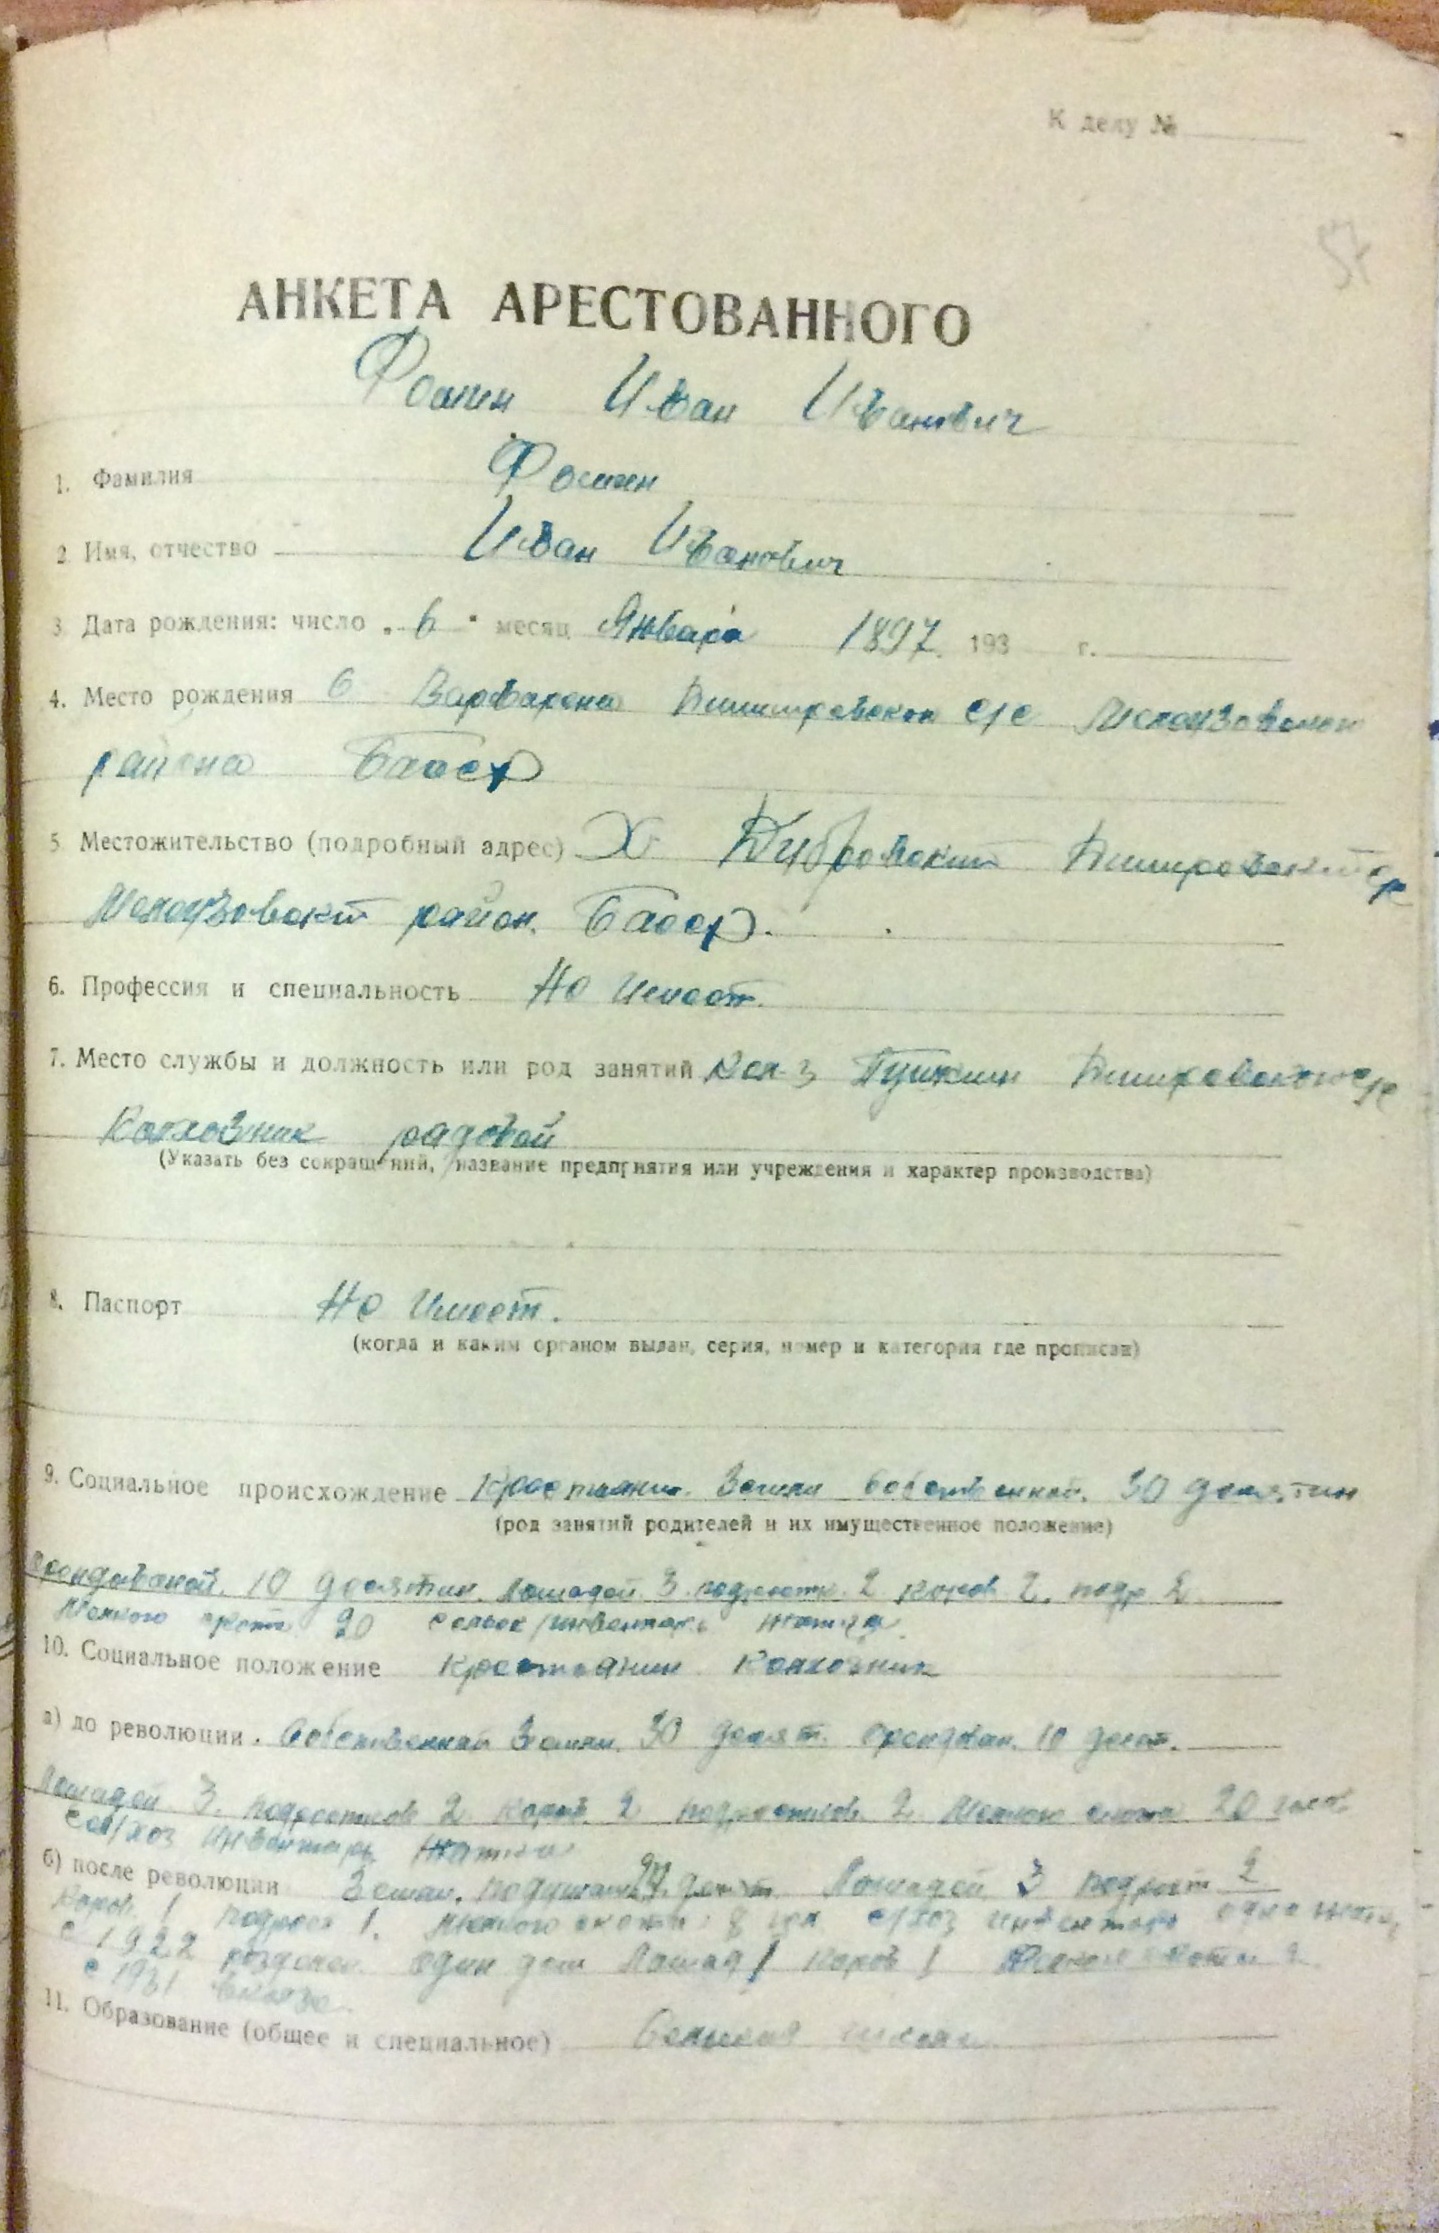 К делу №
57
АНКЕТА АРЕСТОВАННОГО
Фомин Иван Иванович
1. Фамилия Фомин
2. Имя, отчество Иван Иванович
3. Дата рождения: число „6" месяц Января 1897. 193 г.
4. Место рождения С Варварено с/с Мелеузовского
района Баоср
5. Местожительство (подробный адрес) Х. Дубровский
Мелеузовский район. Баоср.
6. Профессия и специальность Не имеет.
7. Место службы и должность или род занятий Кол-з Пушкин с/с
Колхозник рядовой
(Указать без сокращений, название предприятия или учреждения и характер производства)
8. Паспорт Не имеет.
(когда и каким органом выдан, серия, номер и категория где прописан)
9. Социальное происхождение Крестьянин. Земли собственной. 30 десятин
(род занятий родителей и их имущественное положение)
Арендованой. 10 десятин. Лошадей 3. подростк. 2 коров 2. подр 2
Мелкого скота 20 сельск/инвентарь жатка.
10. Социальное положение Крестьянин Колхозник
а) до революции. Собственной Земли. 30 десят. арендован. 10 десят.
Лошадей 3. подростков 2 коров 2 подростков. 2. Мелкого скота 20 голов
сел/хоз инвентарь жатка
б) после революции Земли. десят. Лошадей 3 подрост 2
Коров 1 подрост 1. Мелкого скота 8 гол с/хоз инвентарь одна жатка,
с 1922 один дом Лошад 1 Коров 1
с 1931 в колхозе
11. Образование (общее и специальное) Сельская школа